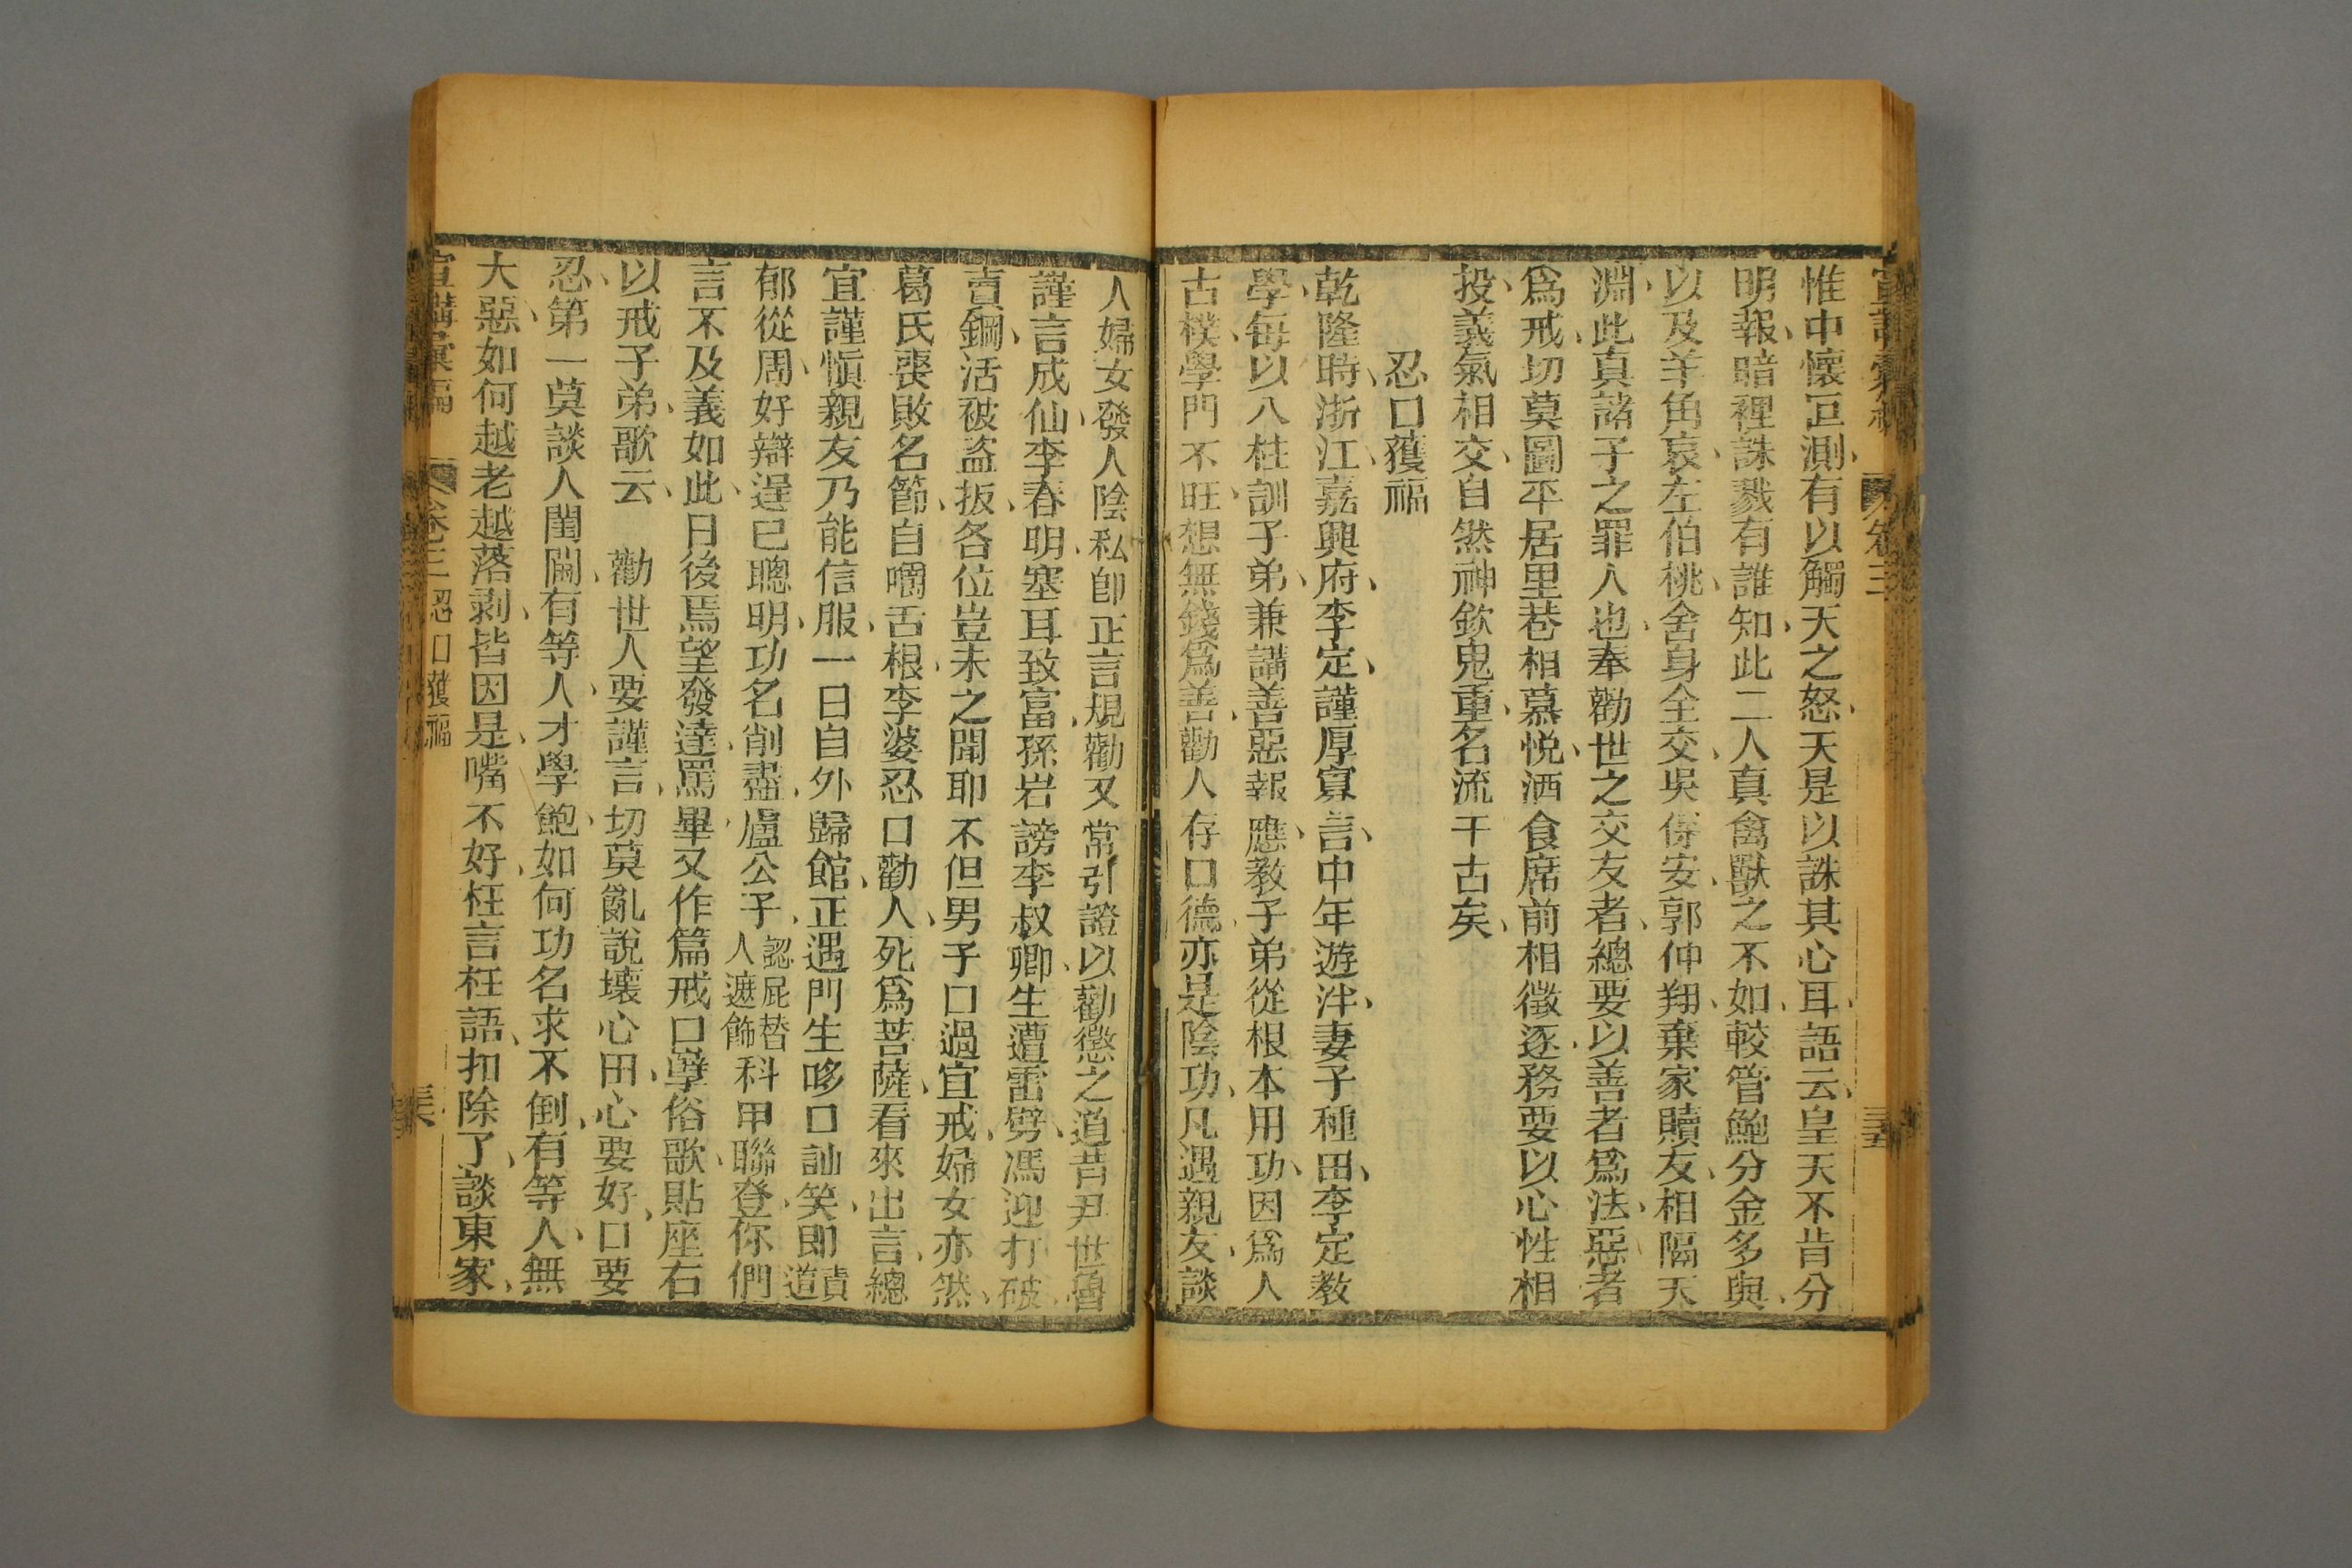 宣講彙編 卷三 三五
惟中懷叵測、有以觸天之怒、天是以誅其心耳、語云、皇天不肯分
明報、暗裡誅戮有誰知、此二人真禽獸之不如、較管鮑分金多與、
以及羊角哀、左伯桃、舍身全交、吳保安、郭仲翔、棄家贖友、相隔天
淵、此真諸子之罪人也、奉勸世之交友者、總要以善者為法、惡者
為戒、切莫圖平居里巷相慕悅、酒食席前相徵逐、務要以心性相
投、義氣相交、自然神欽鬼重、名流千古矣、
忍口獲福
乾隆時、浙江、嘉興府、李定、謹厚寡言、中年遊泮、妻子種田、李定教
學、每以八柱訓子弟、兼講善惡報應、教子弟從根本用功、因為人
古樸、學門不旺、想無錢為善、勸人存口德、亦是陰功、凡遇親友談
人婦女發人陰私卽正言規勸又常引證以勸懲之道昔尹世魯
謹言成仙、李春明塞耳致富、孫岩謗李叔卿、生遭雷劈、馮迎打破
賣鋼、活被盜扳、各位豈未之聞耶、不但男子口過宜戒、婦女亦然、
葛氏喪敗名節、自嚼舌根、李婆忍口勸人、死為菩薩、看來出言、總
宜謹慎親友乃能信服、一日自外歸館、正遇門生哆口訕笑、即責道
郁從周、好辯逞巳聰明、功名削盡、盧公子、認屁替人遮飾科甲聯登、你們
言不及義如此、日後焉望發達、罵畢、又作篇戒口孽俗歌、貼座右
以戒子弟、歌云、　勸世人要謹言、切莫亂說壞心田、心要好、口要
忍、第一莫談人閨閫、有等人、才學飽、如何功名求不倒、有等人、無
大惡、如何越老越落剥、皆因是、嘴不好、枉言枉語、扣除了、談東家、
宣講彙編 卷三 忍口獲福